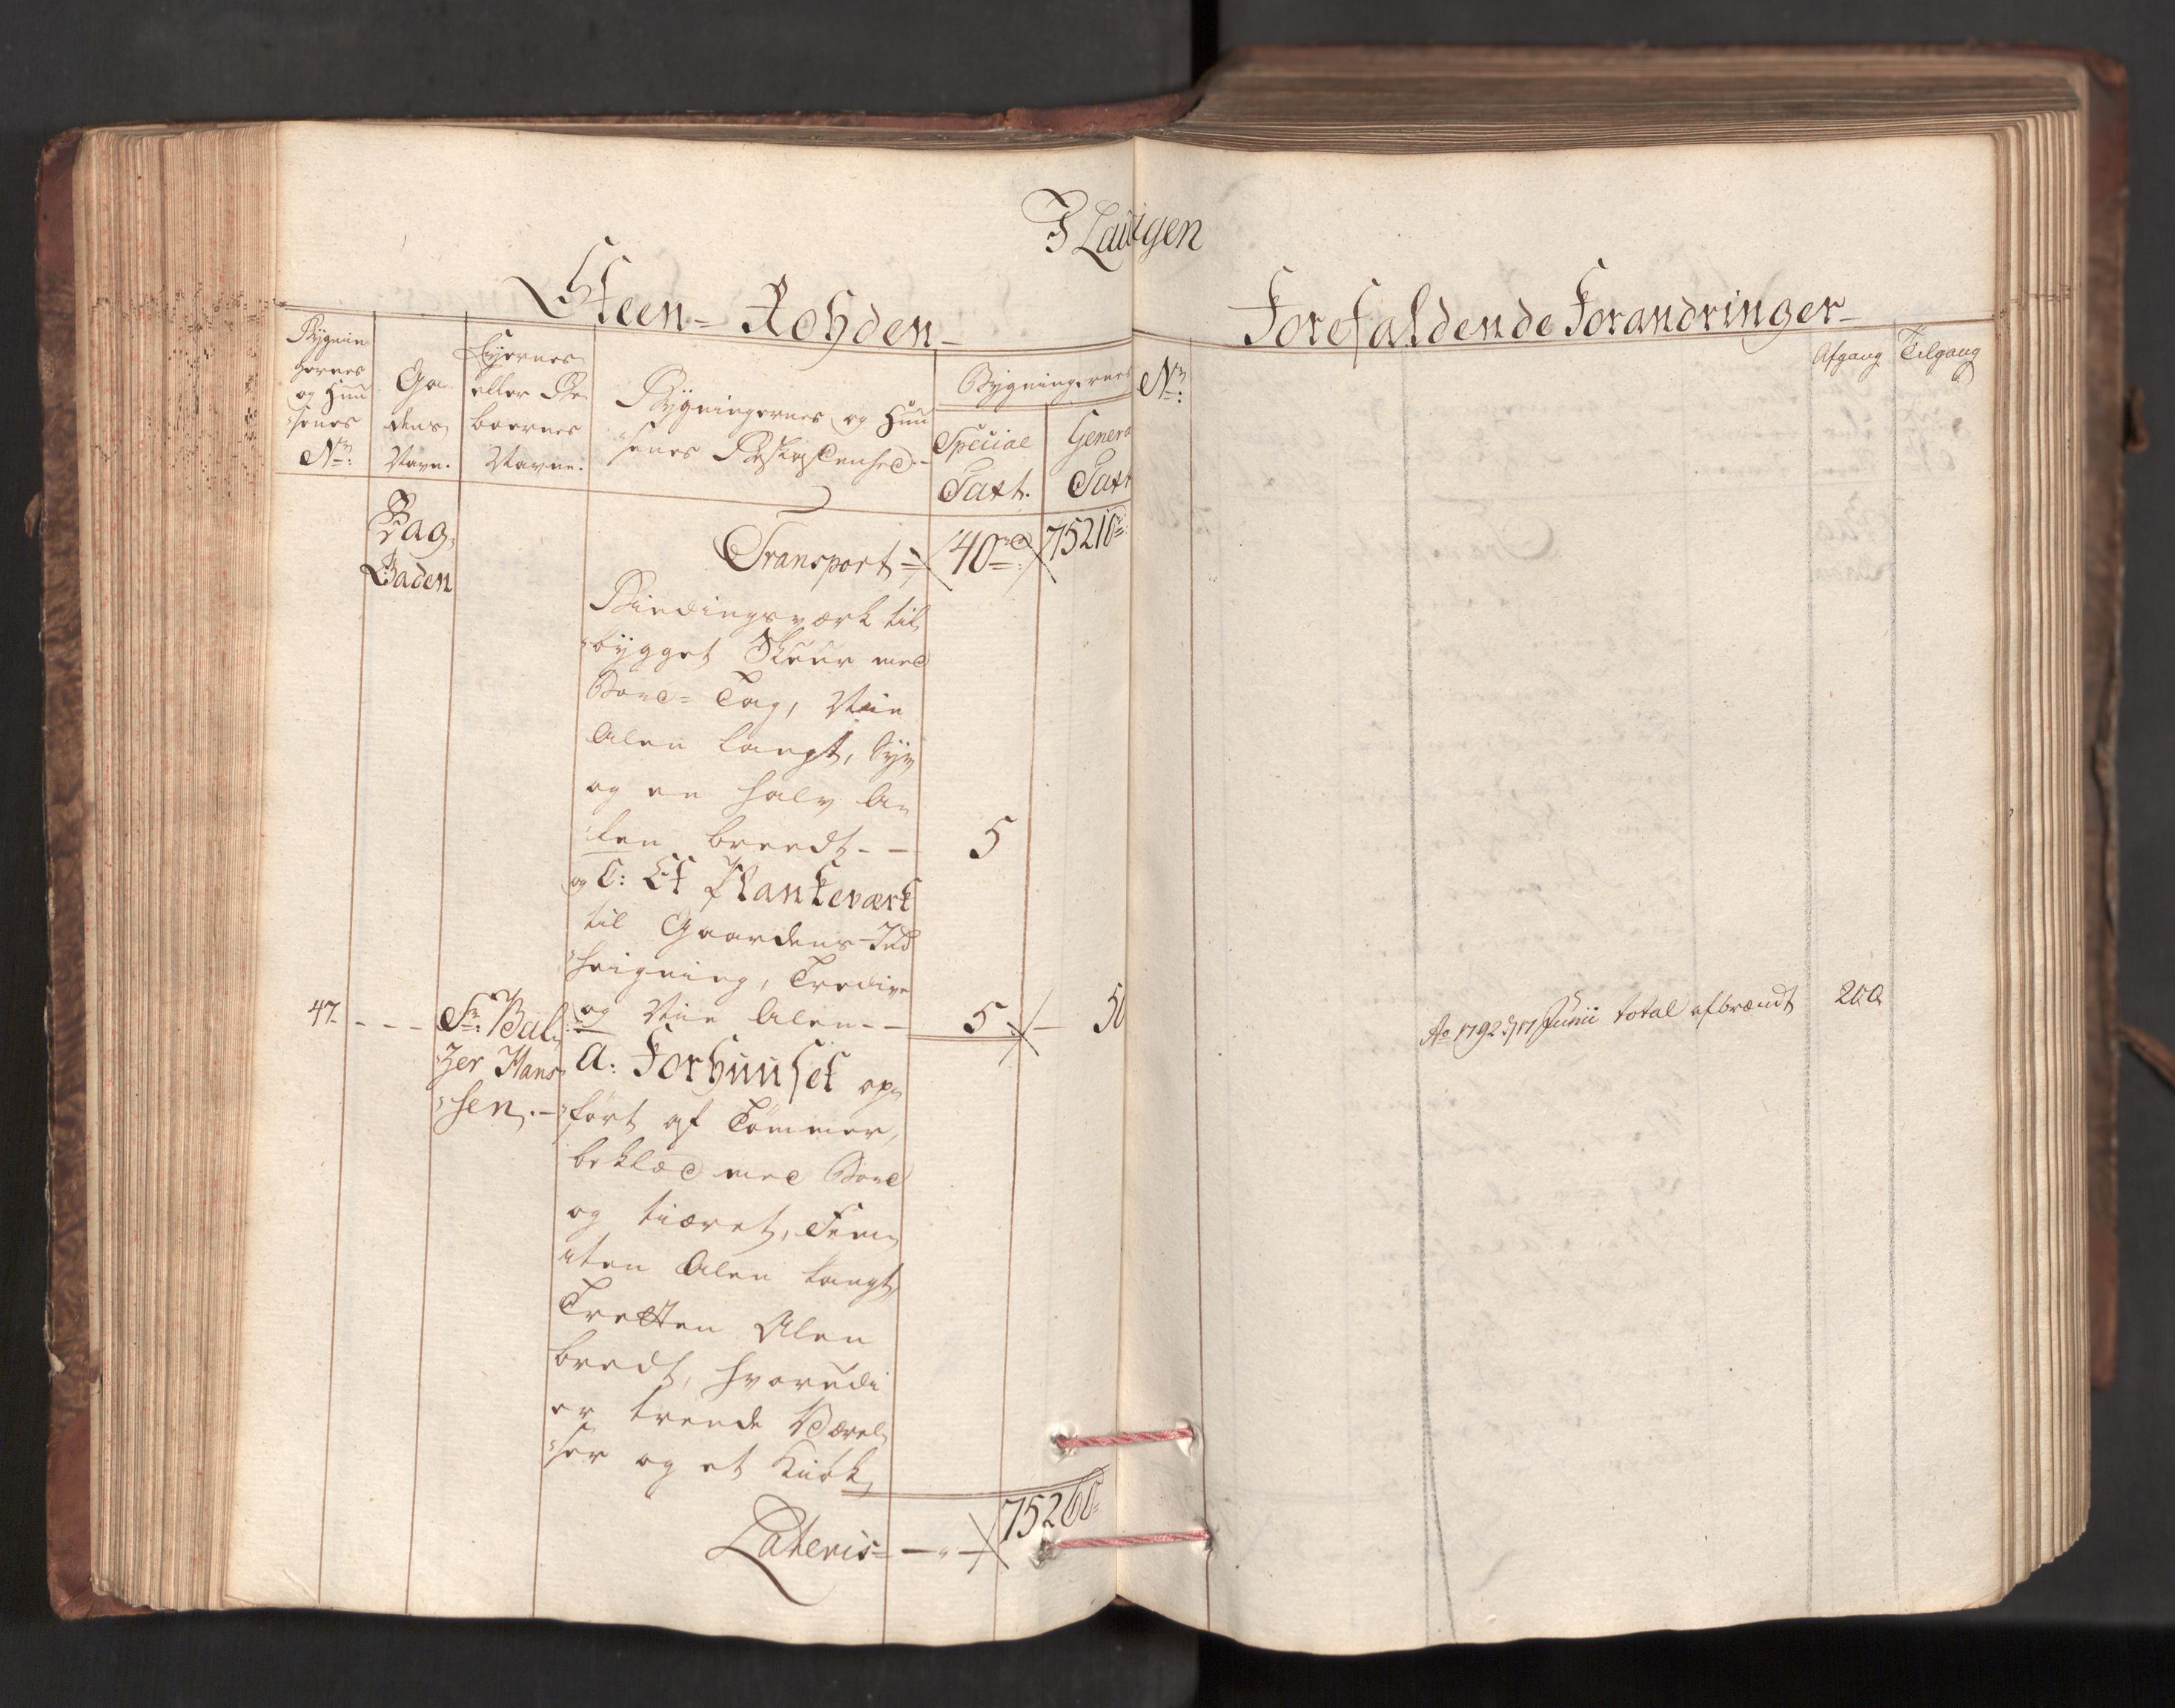 I Laurgen
Steen-Rohden
Forefaldende Forandringer
Bygnin
gernes
og Huu
senes
No:
Ga
dens
Navn.
Eyernes
eller Be
boernes
Navne.
Bygningernes og Huu
senes Beskaffenhed.
Bygningernes
Special
Taxt.
Genera
Taxt
No:
Afgang
Tilgang
Bag
Gaden
Transport
40 rd
75210
Bindingsværk til
bygget Skuur med
Bord-Tag, Nie
Alen langt, Syv
og en halv A
len breedt - -
5
og C: Et Plankeværk
til Gaardens Ind
heigning, Tredive
og Nie Alen - -
5
50
47
Fr: Bal
zer Hans
sen.
a: Forhuuset op
ført af Tømmer,
beklæd med Bord
og tiæret, Fem
ten Alen langt,
Tretten Alen
bredt, hvorudi
er trende Værel
ser og et Kiøk
Ao 1792 d 17 Junii total afbrændt
200
Lateris
75260